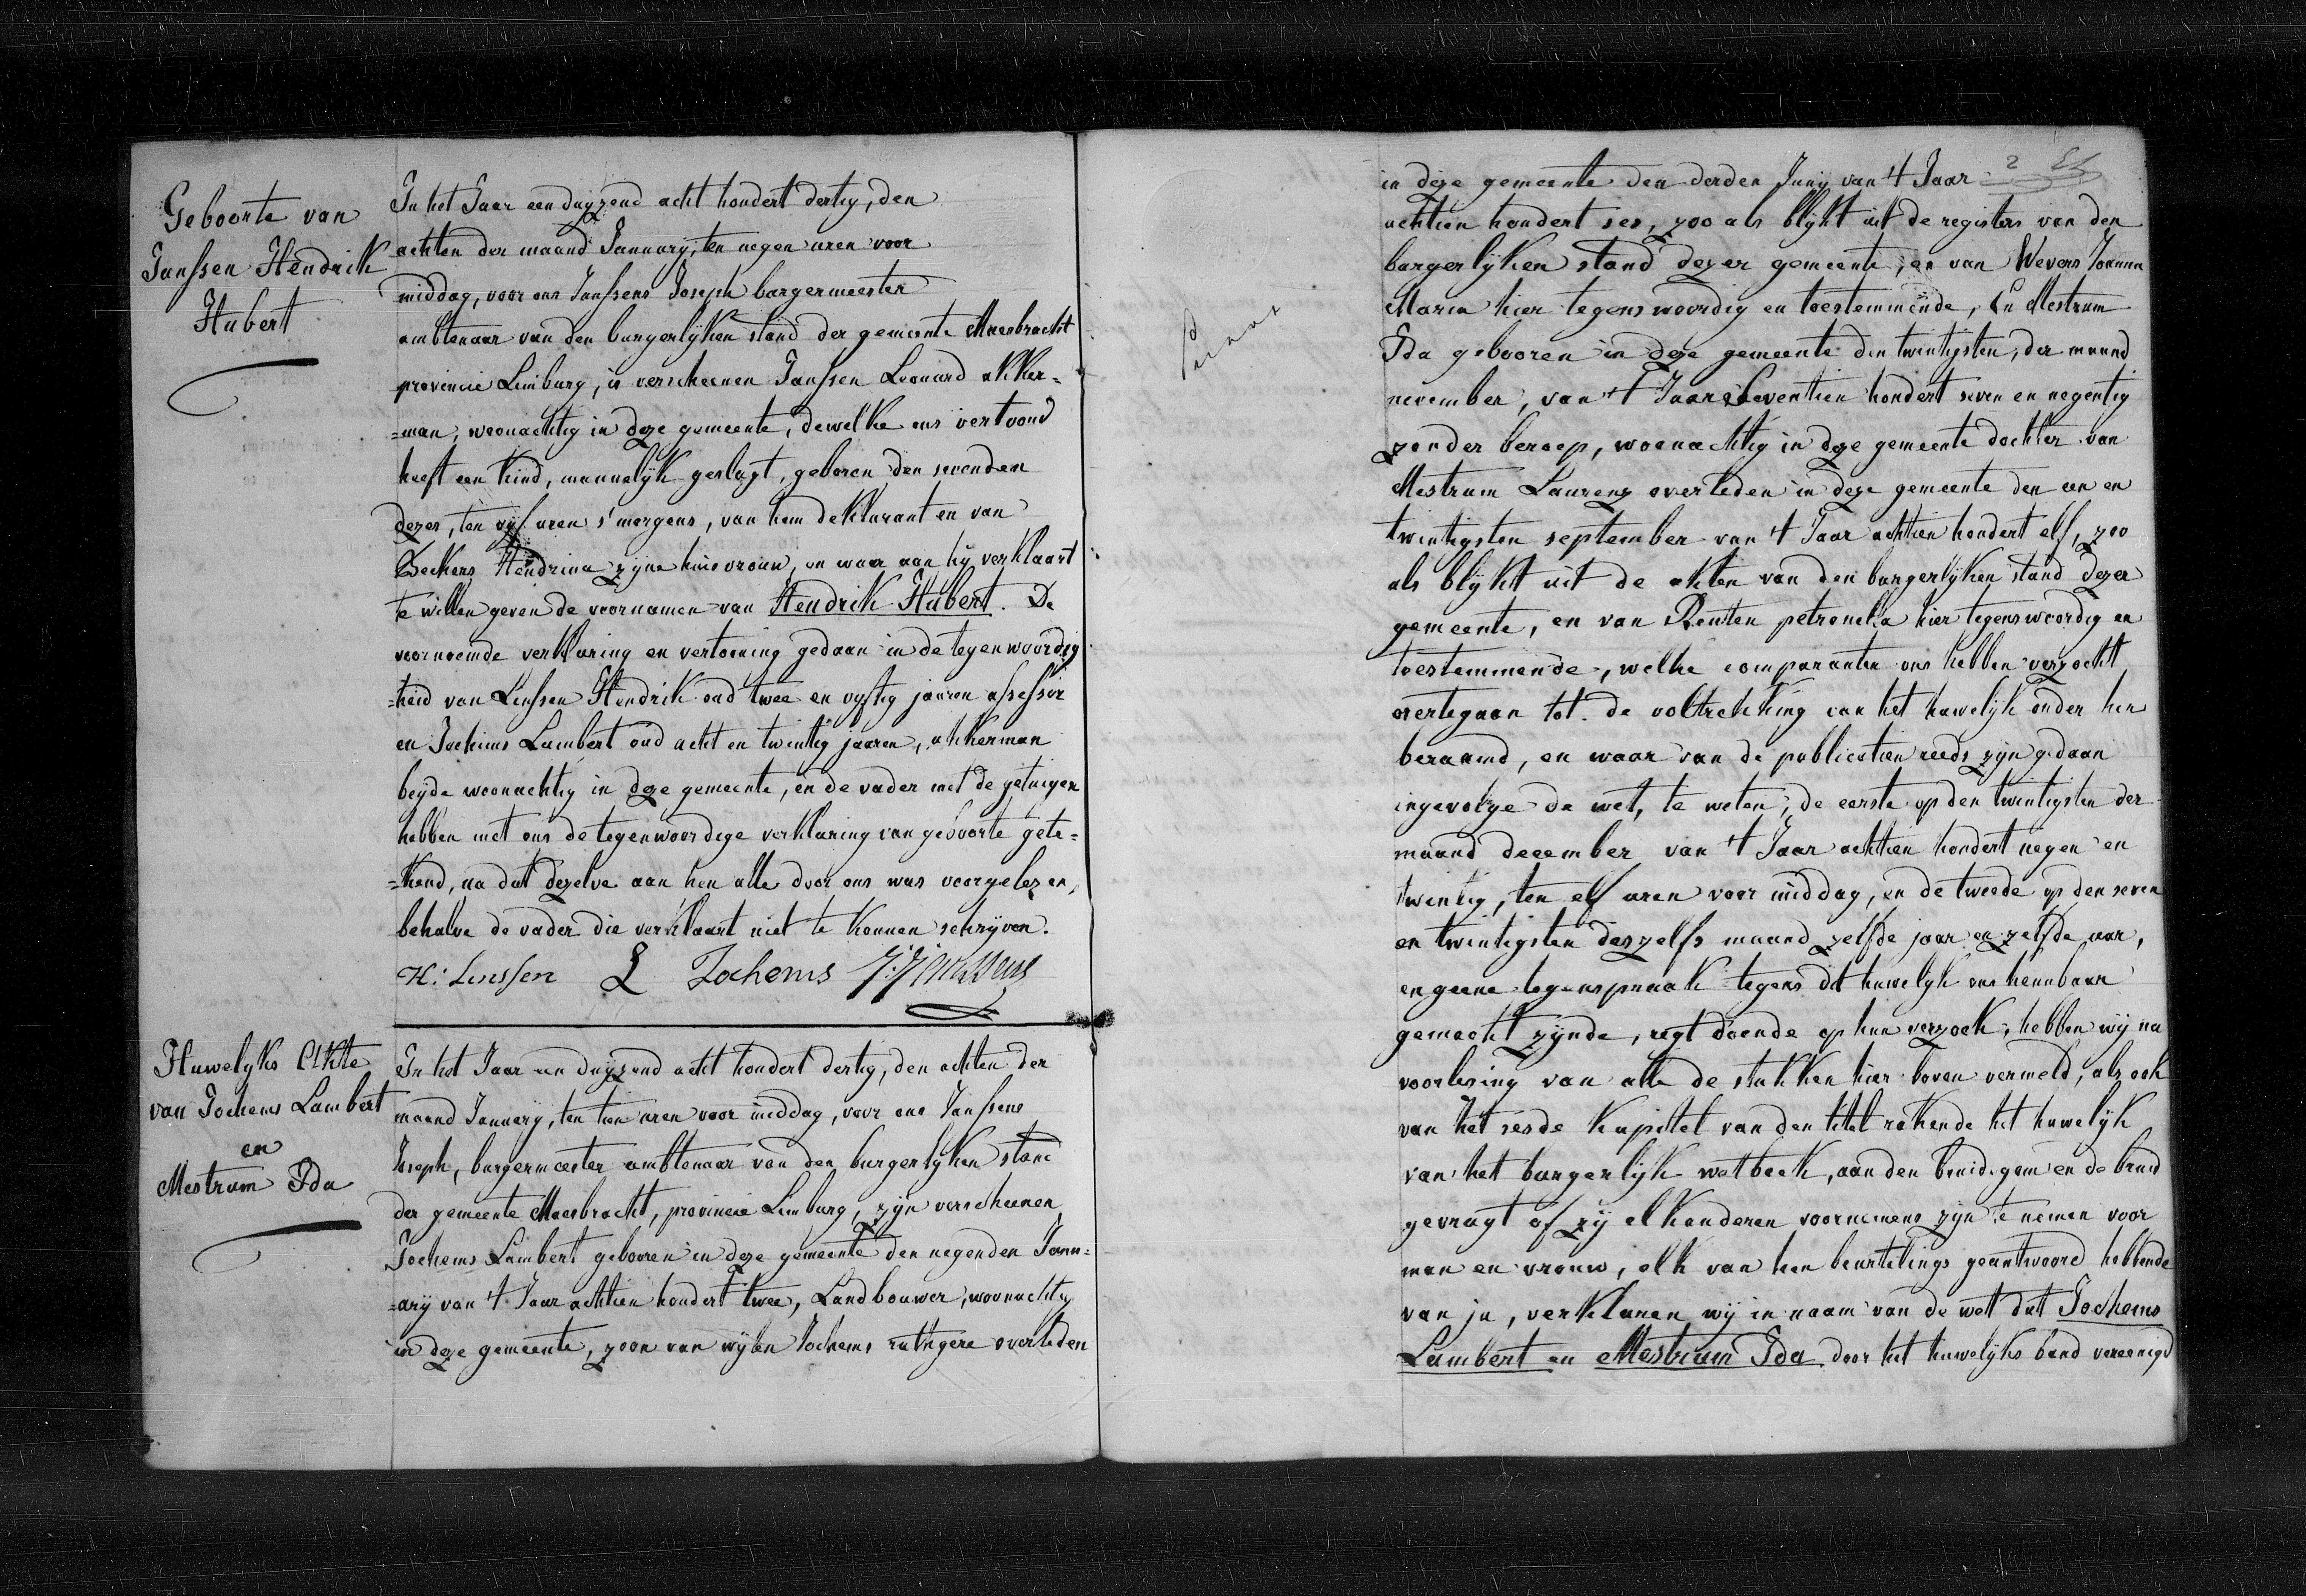 Geboorte van
Janssen Hendrik
Hubert
In het Jaar een duyzend acht hondert dertig, den
achten der maand January, ten negen uren voor
middag, voor ons Janssens Joseph burgermeester
ambtenaar van den burgerlyken stand der gemeente Maesbracht
provincie Limburg, is verscheenen Janssen Leonard akker=
=man, woonachtig in deze gemeente, dewelke ons vertoond
heeft een kind, mannelyk geslagt, geboren den sevenden
dezer, ten vyf uren s'morgens, van hem deklarant en van
Beckers Hendrina zyne huisvrouw, en waar aan hy verklaart
te willen geven de voornamen van Hendrik Hubert. De
voornoemde verklaring en vertooning gedaan in de tegenwoordig
=heid van Linssen Hendrik oud twee en vyftig jaaren assessor
en Jochims Lambert oud acht en twintig jaaren, akkerman
beyde woonachtig in deze gemeente, en de vader met de getuigen
hebben met ons de tegenwoordige verklaring van geboorte gete=
=kend, na dat dezelve aan hen alle door ons was voorgelezen,
behalve de vader die verklaart niet te konnen schryven.
H: Linssen L Jochems J: J Janssens
Huwelyks Akte
van Jochems Lambert
en
Mestrum Ida
In het Jaar een duyzend acht hondert dertig, den achten der
maand January, ten tien uren voor middag, voor ons Janssens
Joseph, burgermeester ambtenaar van den burgerlyken stand
der gemeente Maesbracht, provincie Limburg, zyn verscheenen
Jochems Lambert gebooren in deze gemeente den negenden Janu=
=ary van 't Jaar achtien hondert twee, Landbouwer, woonachtig
in deze gemeente, zoon van wylen Jochems ruthgere overleden
2
in deze gemeente den derden Juny van 't Jaar
achtien hondert ses, zoo als blykt uit de registers van den
burgerlyken stand dezer gemeente, en van Wevers Joanna
Maria hier tegenswoordig en toestemmende, En Mestrum
Ida gebooren in deze gemeente den twintigsten, der maand
november, van 't Jaar Seventien hondert seven en negentig
zonder beroep, woonachtig in deze gemeente dochter van
Mestrum Laurenz overleden in deze gemeente den een en
twintigsten september van 't Jaar achtien hondert elf, zoo
als blykt uit de akten van den burgerlyken stand dezer
gemeente, en van Renten petronella hier tegenswoordig en
toestemmende, welke comparanten ons hebben verzocht
overtegaan tot de voltrekking van het huwelyk onder hen
beraamd, en waar van de publicatien reeds zyn gedaan
ingevolge de wet, te weten, de eerste op den twintigsten der
maand december van 't Jaar achtien hondert negen en
twintig, ten elf uren voor middag, en de tweede op den seven
en twintigsten deszelfs maand zelfde jaar en zelfde uur,
en geene tegenspraak tegens dit huwelyk ons kennbaar
gemacht zynde, regt doende op hun verzoek, hebben wij na
voorlesing van alle de stukken hier boven vermeld, als ook
van het sesde kapittel van den titel rakende het huwelyk
van het burgerlyk wetboek, aan den bruidegom en de bruid
gevragt of zij elkanderen voornemens zyn te nemen voor
man en vrouw, elk van hen beurtelings geantwoord hebbende
van ja, verklaren wij in naam van de wet dat Jochems
Lambert en Mestrum Ida door het huwelyks band vereenigd